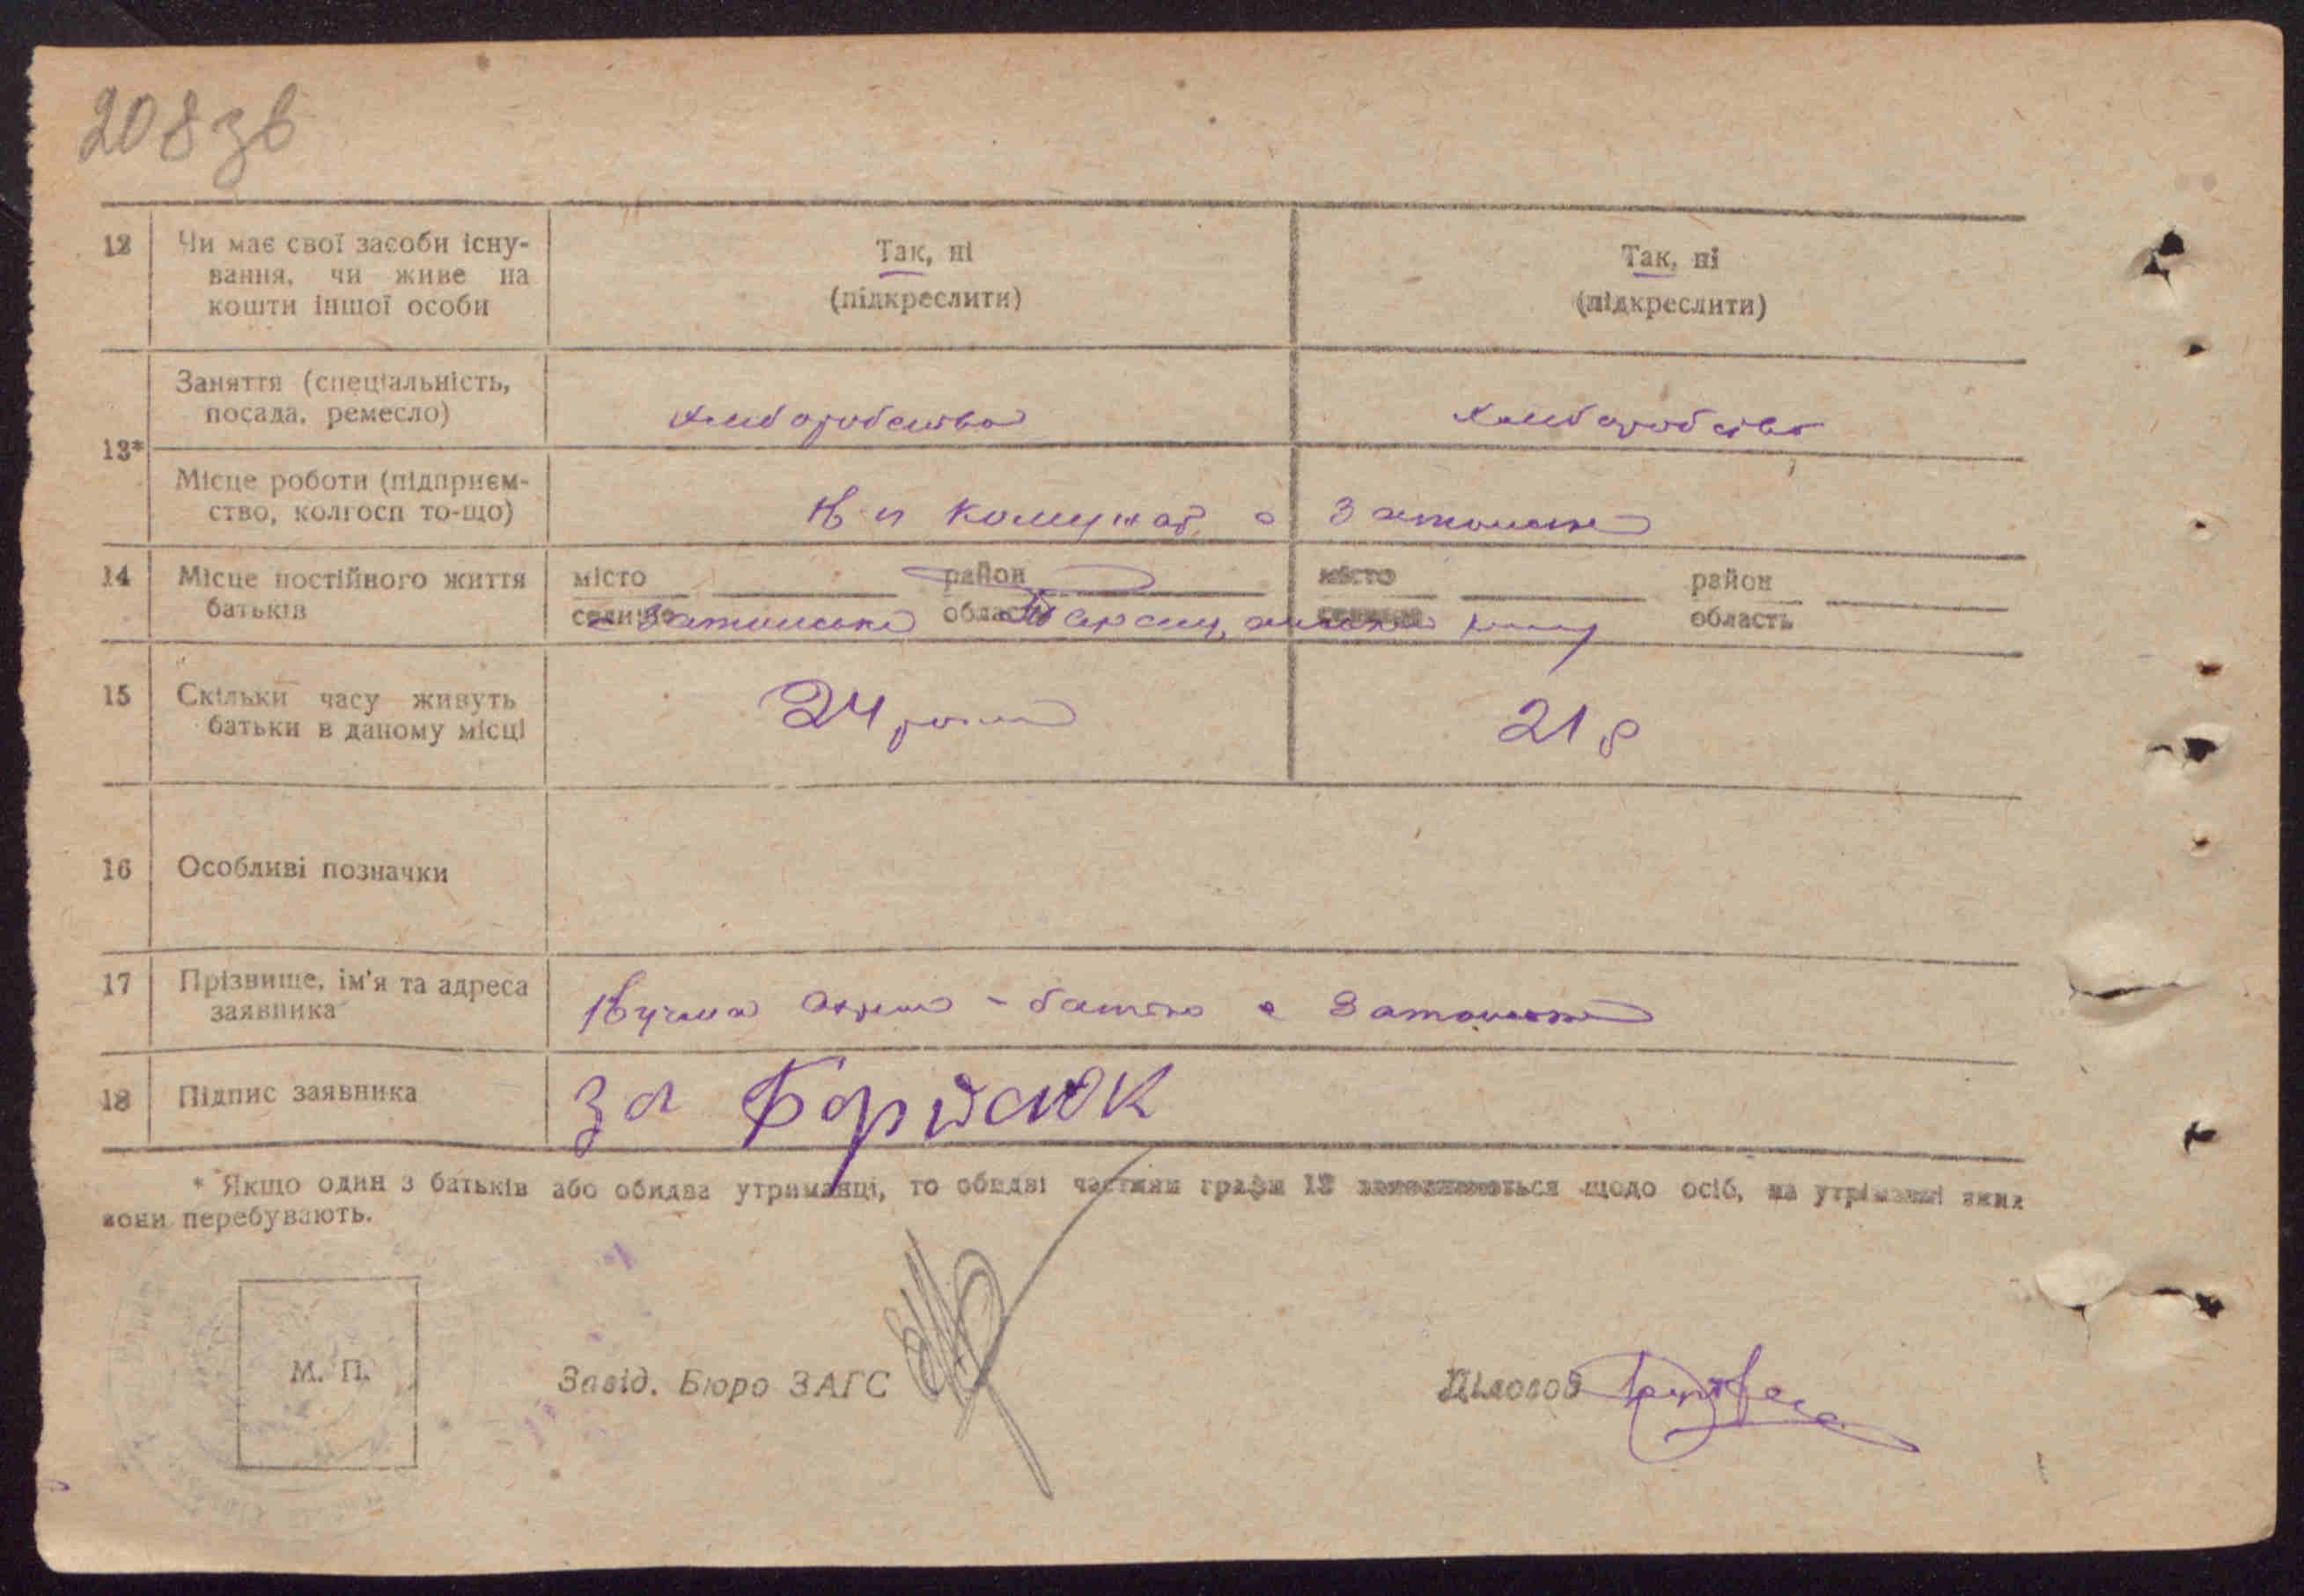 208зв
12 Чи має свої засоби існу-
вання, чи живе на
кошти іншої особи
Так, ні
(підкреслити)
Так, ні
(підкреслити)
13*
Заняття (спеціальність,
посада, ремесло)
хліборобство
хліборобство
Місце роботи (підприєм-
ство, колгосп то-що)
К-п Комунар с Затонське
14 Місце постійного життя
батьків
місто район
селище область
місто район
селище область
с Затонське
15 Скільки часу живуть
батьки в даному місці
24 роки
21 р
16 Особливі позначки
17 Прізвище, ім'я та адреса
заявника
Кучма - батько с Затонське
18 Підпис заявника
за Борисюк
* Якщо один з батьків або обидва утриманці, то обидві частини графи 13 заповнюються щодо осіб, на утріманні яких
вони перебувають.
М. П.
Завід. Бюро ЗАГС
Діловод